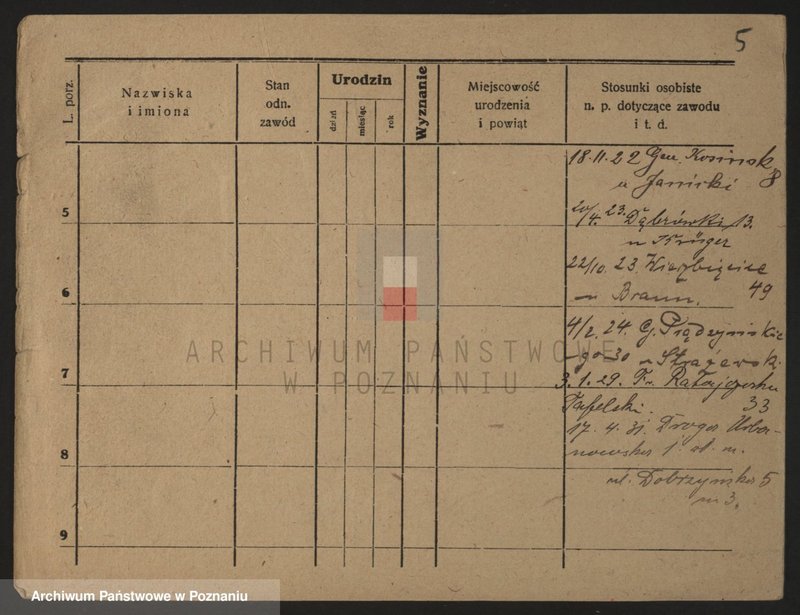 5
L. porz.
Nazwiska
i imiona
Stan
odn.
zawód
Urodzin
dzień
miesiąc
rok
Wyznanie
Miejscowość
urodzenia
i powiat
Stosunki osobiste
n. p. dotyczące zawodu
i t. d.
18.11.22 Gen. Kosińsk
8
u Janicki
5
20/4. 23. Dąbrówki 13.
u Krüger
22/10. 23. Wierzbięcice
6
u Braun. 49
4/2. 24. G. Prądzyńskie
go 30 u
ARCHIWUM PAŃSTWOWE
W POZNANIU
7
3.1.29. Fr. Ratajczaka
33
17. 4. 31. Droga Urba-
nowska 1
8
ul. Dobrzyńska 5
m 3.
9
Archiwum Państwowe w Poznaniu